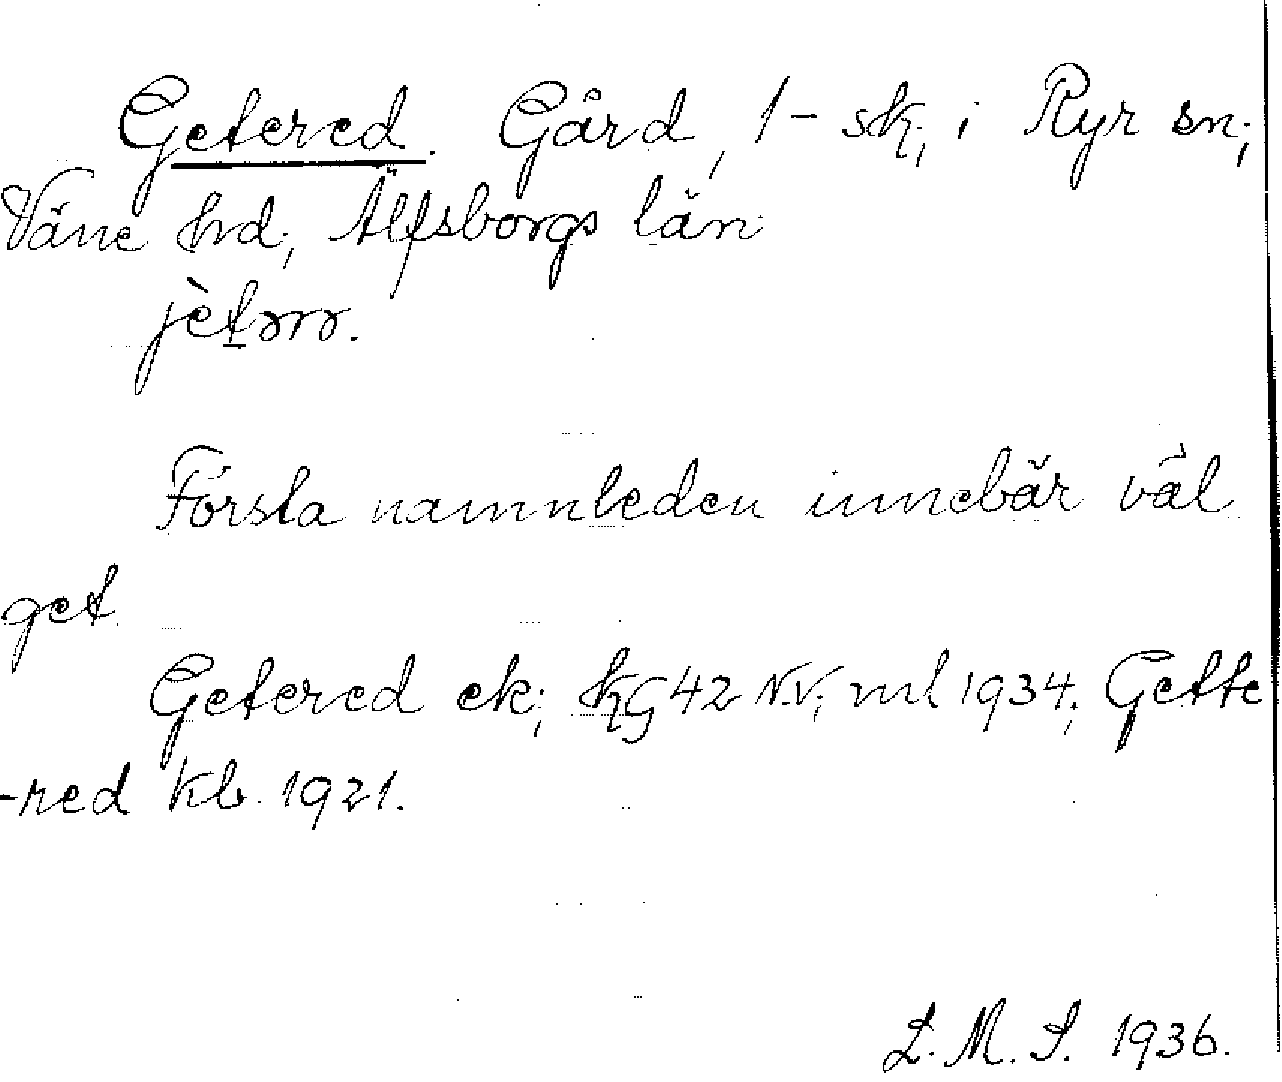 Getered. Gård, 1-sk., i Ryr sn;
Väne hd, Älfsborgs län
jètərə.
Första namnleden innebär väl
get.
Getered ek; kG 42 N.V; ml 1934; Gette
-red kb. 1921.
L. M. S. 1936.